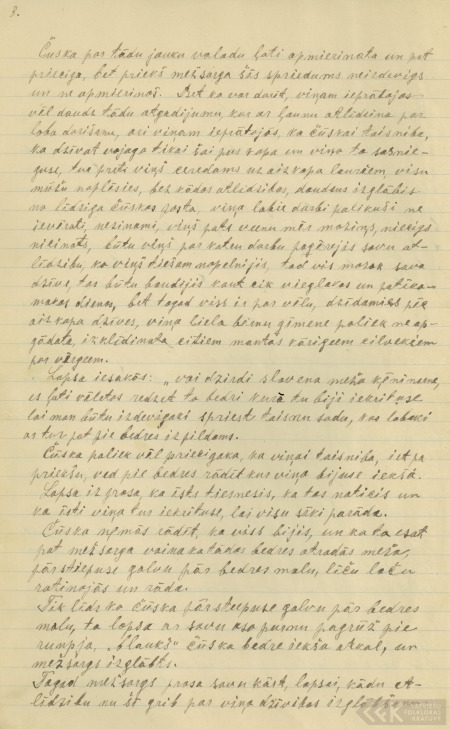 3.
Čūska par tādu jauku valodu ļoti apmierināta un pat
priecīga, bet priekš mežsarga šās spriedums neizdevīgs
un ne apmierinoš. Bet ko var darīt, viņam iepratojas
vēl daudz tādu atgadijumu, kur ar ļaunu atlidzina par
laba darišanu, ari viņam iepratojas, ka čūskai taisniba,
ka dzivot vajaga tikai šai pus kapa un viņa to sasnie-
guse, turpreti viņš ceredams uz aizkapa lauriem, visu
mūžu noplēsies, bez kādas atlidzibas, daudzus izglābis
no lidziga čūskas posta, viņa labie darbi palikuši ne
ievēroti, nezinami, viņš pats vienmēr mazinajs, niecigs
nicinats, būtu viņš par katru darbu pagērejis savu at-
lidzibu, ko viņš tiešam nopelnijis, tad vismazak sava
dzīve, tas būtu baudijis kaut cik vieglakas un patika-
makas dienas, bet tagad viss ir par vēlu, dzidamies pēc
aizkapa dzīves, viņa liela bērnu ģimene paliek ne ap-
gādata, izklīdinata, citiem mantas kārigiem cilvēkiem
par vērgiem.
Lapsa iesakās: „vai dzirdi slavena meža ķēniniene,
es ļoti vēlētos redzēt to bedri kurā tu biji iekrituse
lai man būtu izdevigaki spriest taisnu sodu, kas labaki
ar tur pat pie bedres izpildams.
Čūska paliek vēl priecigaka, ka viņai taisniba, iet pa
priekšu, ved pie bedres rādit kur viņa bijuse iekšā.
Lapsa iz prasa, ka īsts tiesnesis, ka tas noticis un
ka īsti viņa tur iekrituse, lai visu sīki parāda.
Čūska ņēmās rādit, ka viss bijis, un ka to esat
pat mežsarga vaina ka tādas bedres atradās meža,
pārstiepuse galvu pār bedres malu, līču loču
ratinojās un rāda.
Tik līdz ko čūska pārstiepuse galvu pār bedres
malu, ta lapsa ar savu aso purnu pagrūž pie
rumpja, „blaukš" čūska bedre iekša atkal, un
mežsargs izglābts.
Tagad mežsargs prasa savu kārt, lapsai, kādu at-
lidzibu nu šī grib par viņa dzīvibas izglābšanu
LATVIEŠU FOLKLORAS KRĀTUVE